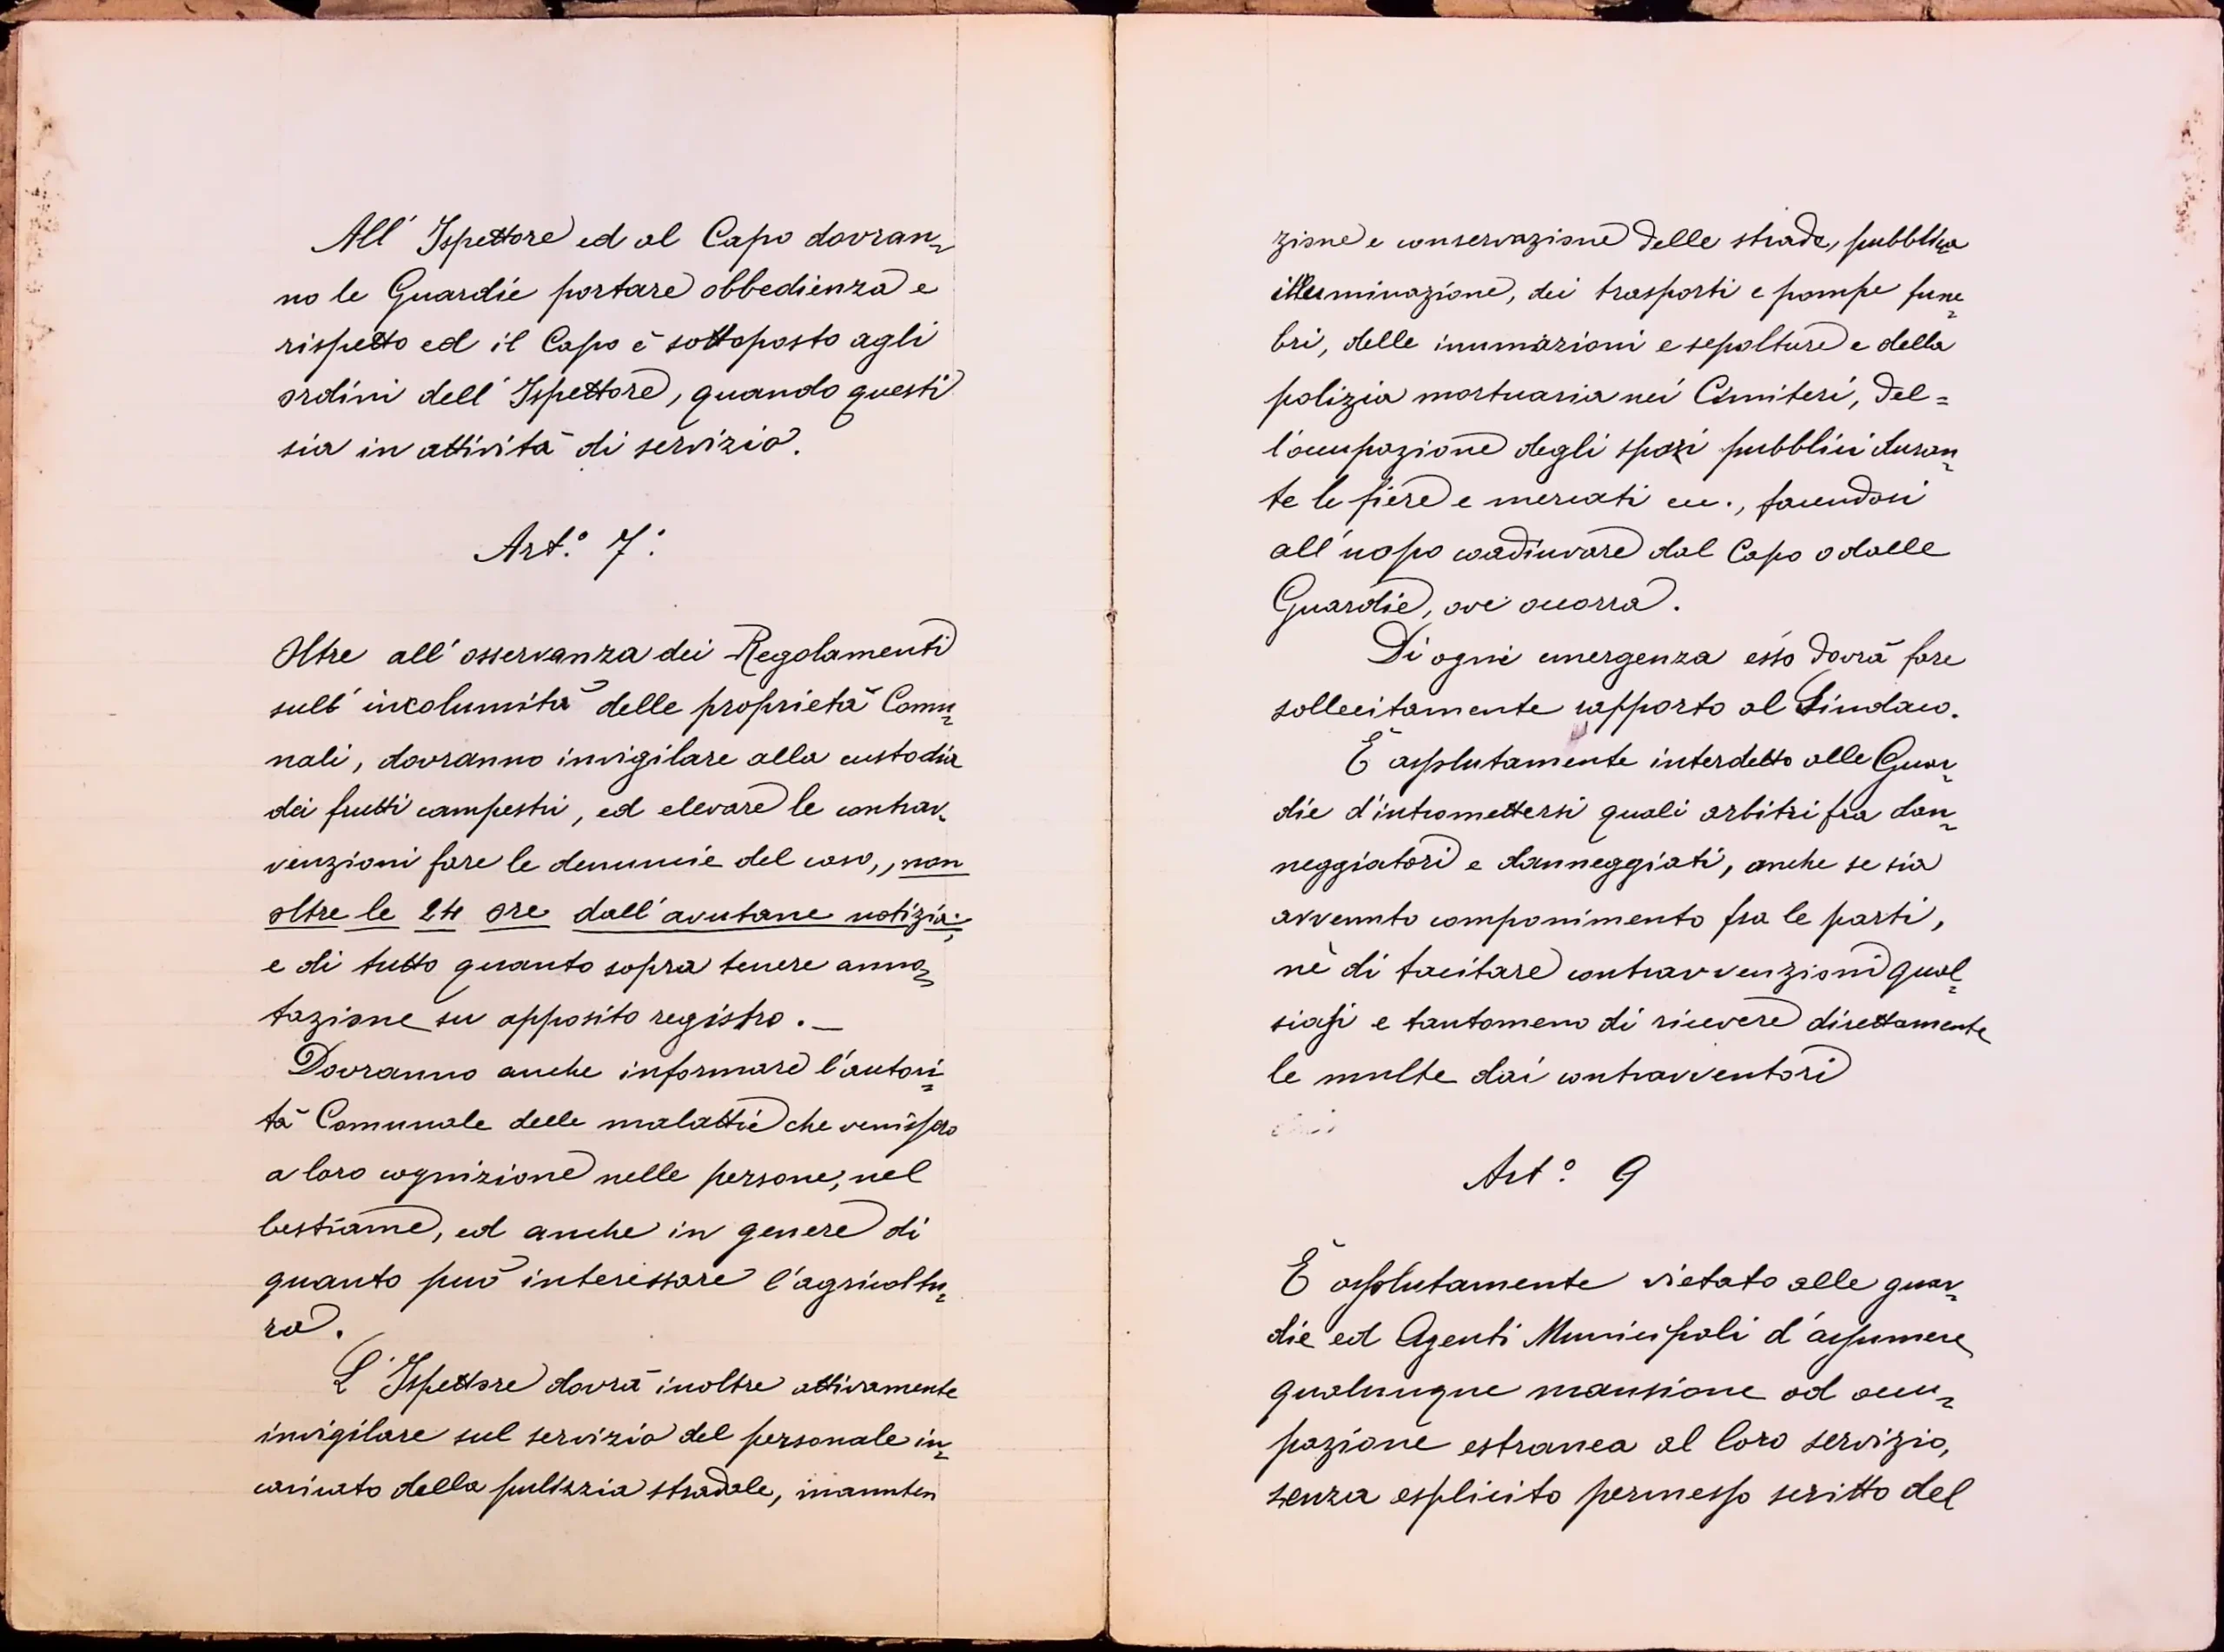 All' Ispettore ed al Capo dovran=
no le Guardie portare obbedienza e
rispetto ed il Capo è sottoposto agli
ordini dell' Ispettore, quando questi
sia in attività di servizio.
Art.º 7º
Oltre all' osservanza dei Regolamenti
sull' incolumità delle proprietà Comu=
nali, dovranno invigilare alla custodia
dei frutti campestri, ed elevare le contrav=
venzioni fare le denuncie del caso,, non
oltre le 24 ore dall' avutane notizia;
e di tutto quanto sopra tenere anno=
tazione su apposito registro. _
Dovranno anche informare l'autori=
tà Comunale delle malattie che venissero
a loro cognizione nelle persone, nel
bestiame, ed anche in genere di
quanto può interessare l'agricoltu=
ra.
L' Ispettore dovrà inoltre attivamente
invigilare sul servizio del personale in=
caricato della pulizzia stradale, manuten
zione e conservazione delle strade, pubblica
illuminazione, dei trasporti e pompe fune=
bri, delle inumazioni e sepolture e della
polizia mortuaria nei Cimiteri, del=
l'occupazione degli spazi pubblici duran=
te le fiere e mercati ecc., facendosi
all'uopo coadiuvare dal Capo o dalle
Guardie, ove occorra.
Di ogni emergenza esso dovrà fare
sollecitamente rapporto al Sindaco.
È assolutamente interdetto alle Guar=
die d'intromettersi quali arbitri fra dan=
neggiatori e danneggiati, anche se sia
avvenuto componimento fra le parti,
nè di tacitare contravvenzioni qual=
siasi e tantomeno di ricevere direttamente
le multe dai contravventori
Art.º 9
È assolutamente vietato alle guar=
die ed Agenti Municipali d'assumere
qualunque mansione od occu=
pazione estranea al loro servizio,
senza esplicito permesso scritto del